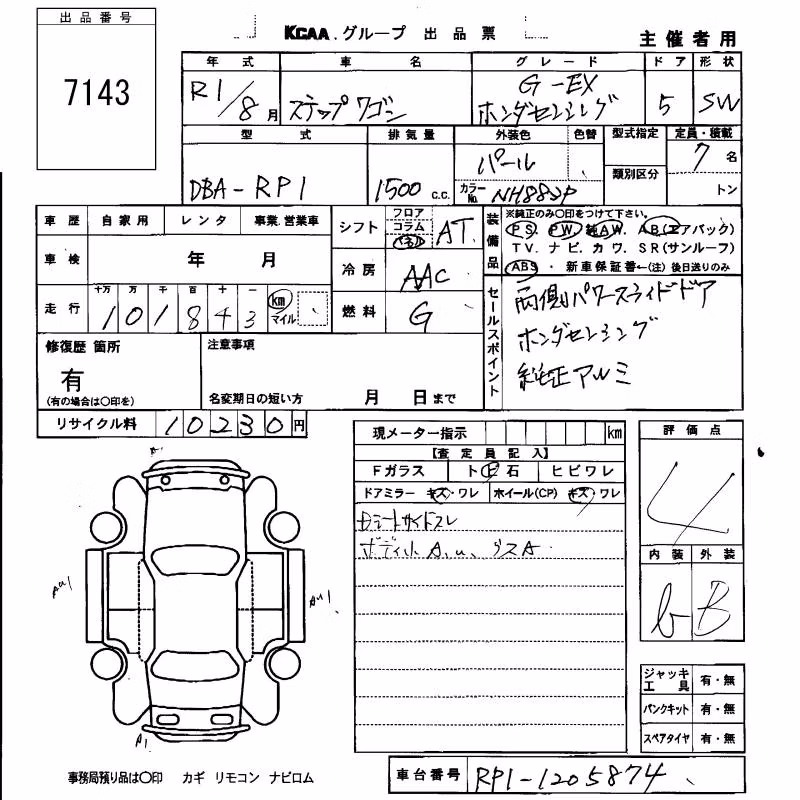 出品番号
7143
KCAA.グループ 出品票
主催者用
年式 車名 グレード ドア 形状
R1/8月 ステップワゴン G-EX ホンダセンシング 5 SW
型式 排気量 外装色 色替 型式指定 定員・積載
DBA-RP1 1500 c.c. パール 類別区分 7名
カラーNo. NH883P トン
車歴 自家用 レンタ 事業.営業車
シフト フロア コラム AT
車検 年 月
冷房 AAC
走行 十万 万 千 百 十 一 km マイル
101843
燃料 G
装備品 ※純正のみ〇印をつけて下さい。
PS. PW. 純AW. AB(エアバック)
TV. ナビ. カワ. SR(サンルーフ)
ABS ・ 新車保証書←(注)後日送りのみ
セールスポイント
両側パワースライドドア
ホンダセンシング
純正アルミ
修復歴 箇所
有
(有の場合は〇印を)
注意事項
名変期日の短い方 月 日まで
リサイクル料 10230円
現メーター指示 km
【査定員記入】
Fガラス トビ石 ヒビワレ
ドアミラー キズ・ワレ ホイール(CP) キズ・ワレ
ボディ小A.u.
評価点
4
内装 外装
b B
A1
AU1
AU1
A1
ジャッキ工具 有・無
パンクキット 有・無
スペアタイヤ 有・無
事務局預り品は〇印 カギ リモコン ナビロム
車台番号 RP1-1205874